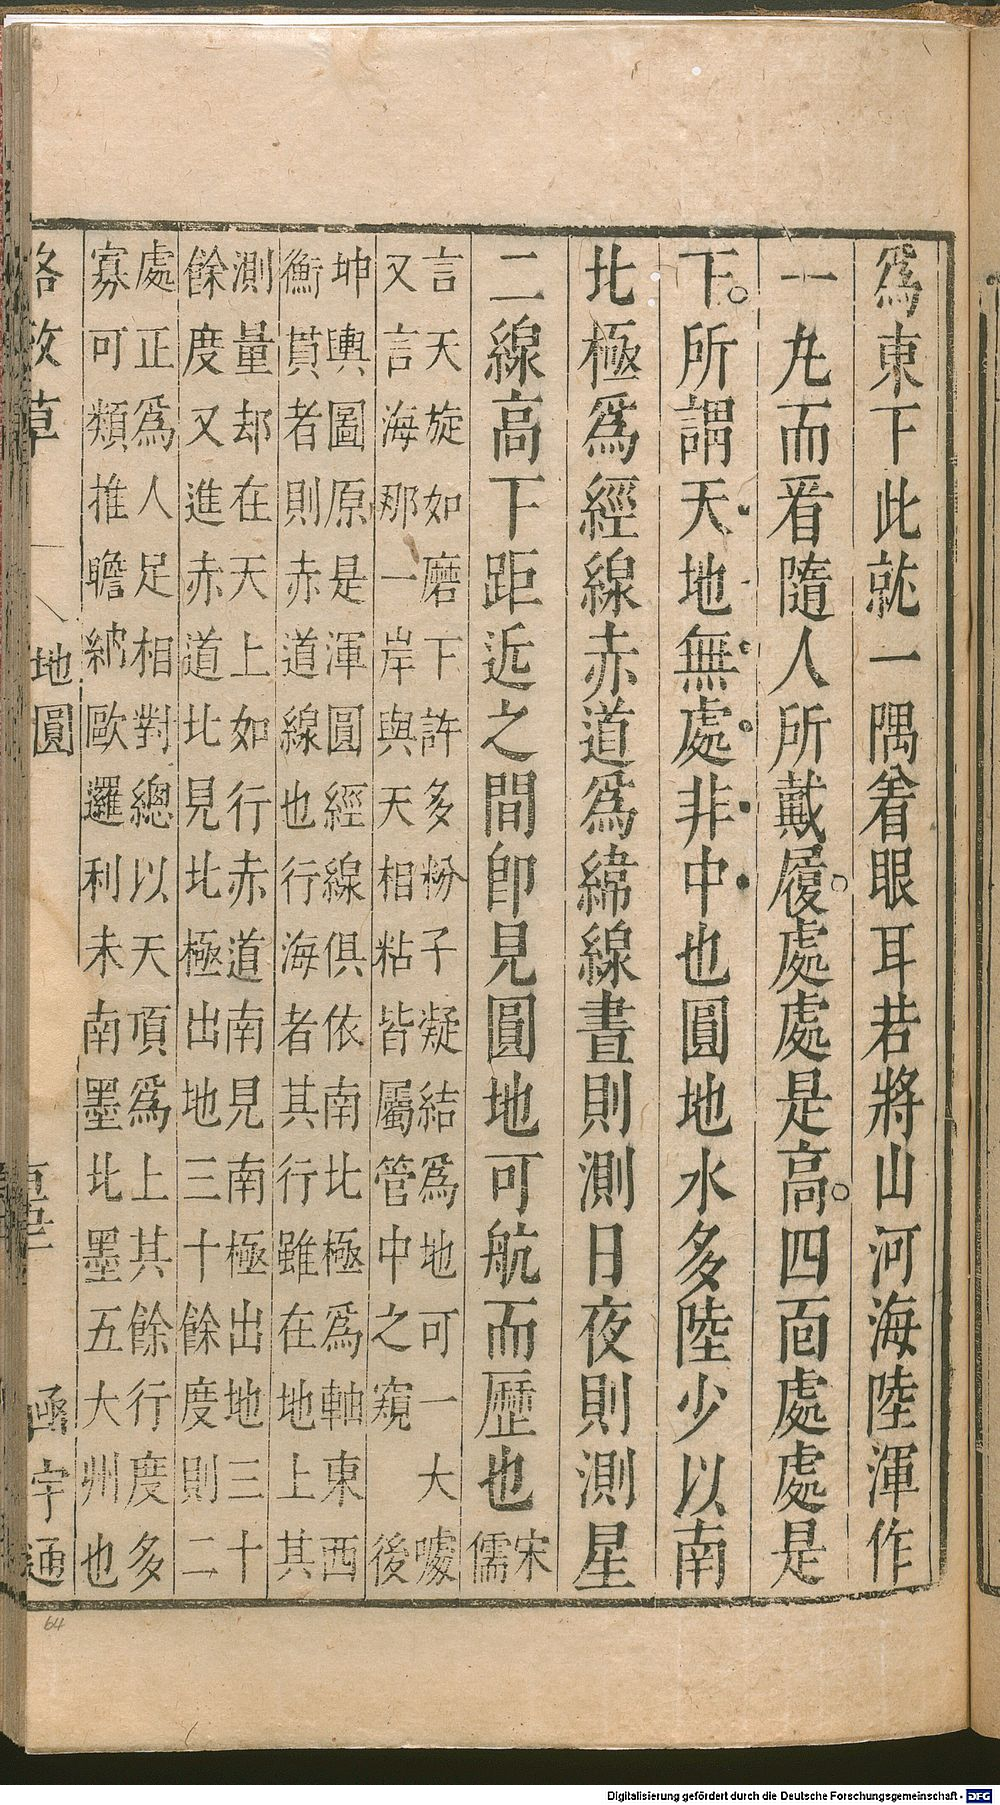 為東下此就一隅着眼耳若將山河海陸渾作
一丸而看隨人所戴履處處是高四面處處是
下所謂天地無處非中也圓地水多陸少以南
北極為經線赤道為緯線晝則測日夜則測星
二線高下距近之間卽見圓地可航而歷也
宋
儒
言天旋如磨下許多粉子凝結為地可一大噱
又言海那一岸與天相粘皆屬管中之窺後
坤輿圖原是渾圓經線俱依南北極為軸東西
衡貫者則赤道線也行海者其行雖在地上其
測量却在天上如行赤道南見南極出地三十
餘度又進赤道北見北極出地三十餘度則二
處正為人足相對總以天頂為上其餘行度多
寡可類推瞻納歐邏利未南墨北墨五大州也
格致草
地圓
函宇通
64
Digitalisierung gefördert durch die Deutsche Forschungsgemeinschaft - DFG